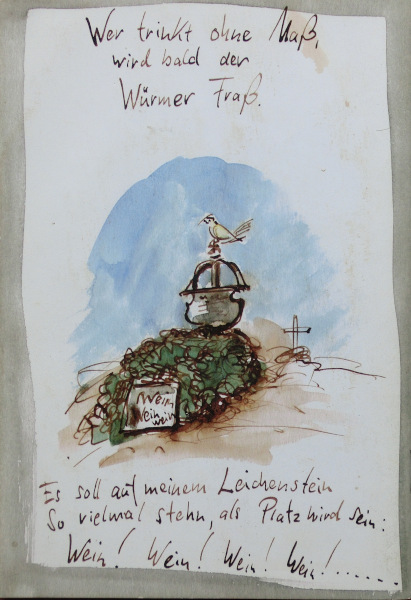 Wer trinkt ohne Maß,
wird bald der
Würmer Fraß.
Wein
Wein
wein
Es soll auf meinem Leichenstein
So vielmal stehn, als Platz wird sein:
Wein! Wein! Wein! Wein!......